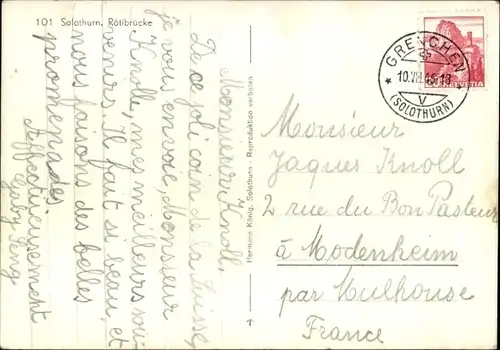 101 Solothurn, Rötibrücke
Monsieur Knoll,
De ce joli coin de la Suisse,
je vous envoie, Monsieur
Knolle, mes meilleurs sou-
venirs. Il fait si beau, et
nous faisons des belles
promenades
Affectueusement
Gaby
Hermann König, Solothurn - Reproduktion verboten
GRENCHEN
(SOLOTHURN)
HELVETIA
Monsieur
Jaques Knoll
2 rue du Bon Pasteur
à Modenheim
par Mulhouse
France